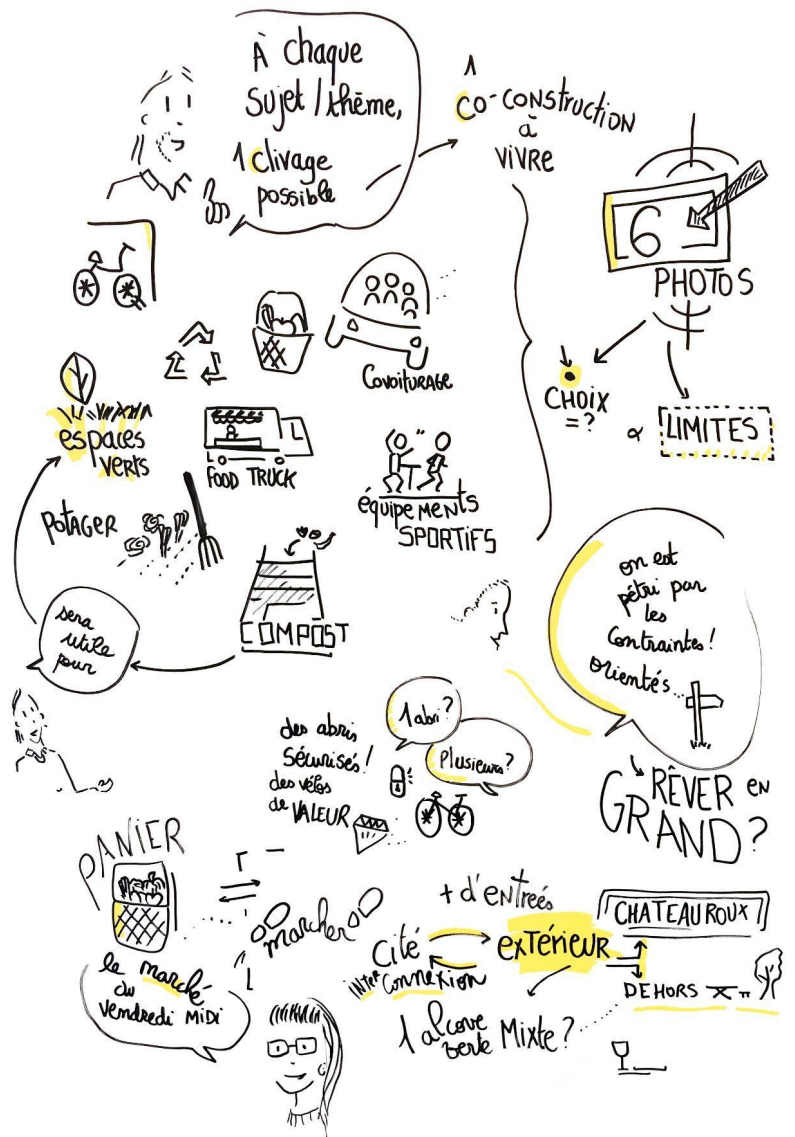 À chaque
sujet / thème,
1 clivage
possible
1
co-construction
à
vivre
6
PHOTOS
CHOIX
= ?
∝ LIMITES
Covoiturage
espaces
verts
FOOD TRUCK
équipements
SPORTIFS
Potager
COMPOST
sera
utile
pour
on est
pétri par
les
contraintes !
orientés...
RÊVER EN
GRAND ?
des abris
sécurisés !
des vélos
de VALEUR
1 abri ?
Plusieurs ?
PANIER
le marché
du
vendredi midi
marcher
+ d'entreés
Cité
INTER
Connexion
extérieur
CHATEAUROUX
DEHORS
1 alcove
verte Mixte ?